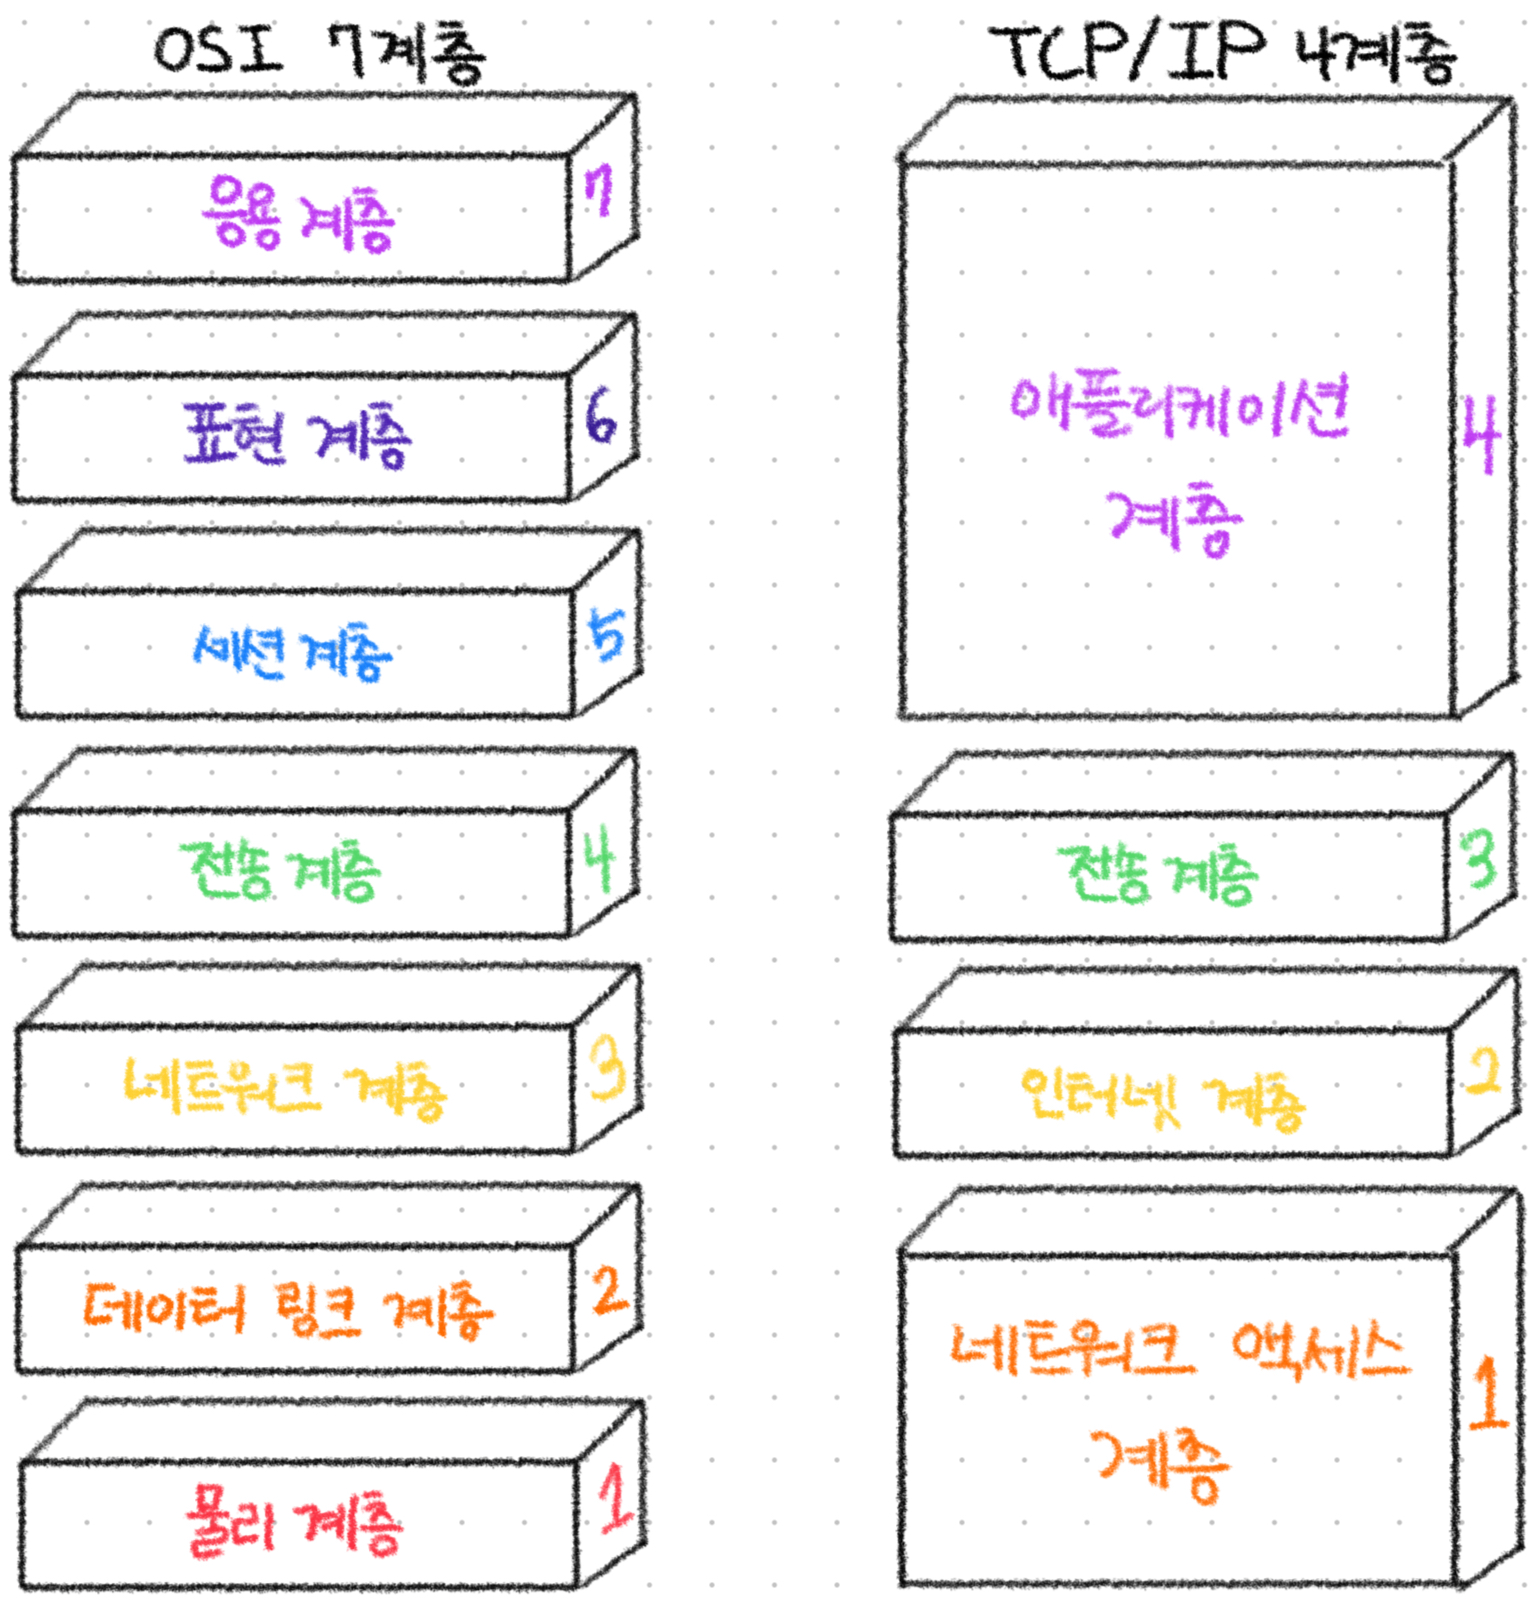 OSI 7계층
응용 계층
7
표현 계층
6
세션 계층
5
전송 계층
4
네트워크 계층
3
데이터 링크 계층
2
물리 계층
1
TCP/IP 4계층
애플리케이션
계층
4
전송 계층
3
인터넷 계층
2
네트워크 액세스
계층
1